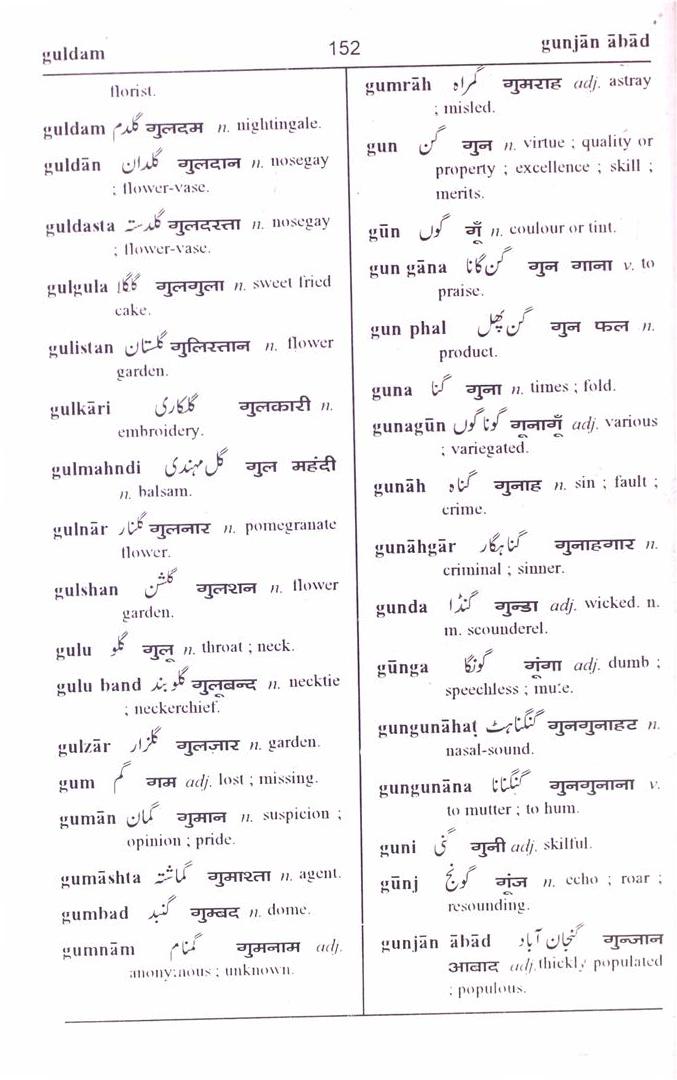 guldam 152 gunjān ābād
florist.
guldam گلدم गुलदम n. nightingale.
guldān گلدان गुलदान n. nosegay
; flower-vase.
guldasta گلدستہ गुलदस्ता n. nosegay
; flower-vase.
gulgula گلگلا गुलगुला n. sweet fried
cake.
gulistan گلستان गुलिस्तान n. flower
garden.
gulkāri گلکاری गुलकारी n.
embroidery.
gulmahndi گل مہندی गुल महंदी
n. balsam.
gulnār گلنار गुलनार n. pomegranate
flower.
gulshan گلشن गुलशन n. flower
garden.
gulu گلو गुलू n. throat ; neck.
gulu band گلو بند गुलूबन्द n. necktie
; neckerchief.
gulzār گلزار गुलज़ार n. garden.
gum گم गम adj. lost ; missing.
gumān گمان गुमान n. suspicion ;
opinion ; pride.
gumāshta گماشتہ गुमाश्ता n. agent.
gumbad گنبد गुम्बद n. dome.
gumnām گمنام गुमनाम adj.
anonymous ; unknown.
gumrāh گمراہ गुमराह adj. astray
; misled.
gun گن गुन n. virtue ; quality or
property ; excellence ; skill ;
merits.
gūn گوں गूँ n. coulour or tint.
gun gāna گن گانا गुन गाना v. to
praise.
gun phal گن پھل गुन फल n.
product.
guna گنا गुना n. times ; fold.
gunagūn گوناگوں गूनागूँ adj. various
; variegated.
gunāh گناہ गुनाह n. sin ; fault ;
crime.
gunāhgār گناہگار गुनाहगार n.
criminal ; sinner.
gunda گنڈا गुन्डा adj. wicked. n.
m. scounderel.
gūnga گونگا गूंगा adj. dumb ;
speechless ; mute.
gungunāhaṭ گنگناہٹ गुनगुनाहट n.
nasal-sound.
gungunāna گنگنانا गुनगुनाना v.
to mutter ; to hum.
guni گنی गुनी adj. skilful.
gūnj گونج गूंज n. echo ; roar ;
resounding.
gunjān ābād گنجان آباد गुन्जान
आबाद adj. thickly populated
; populous.